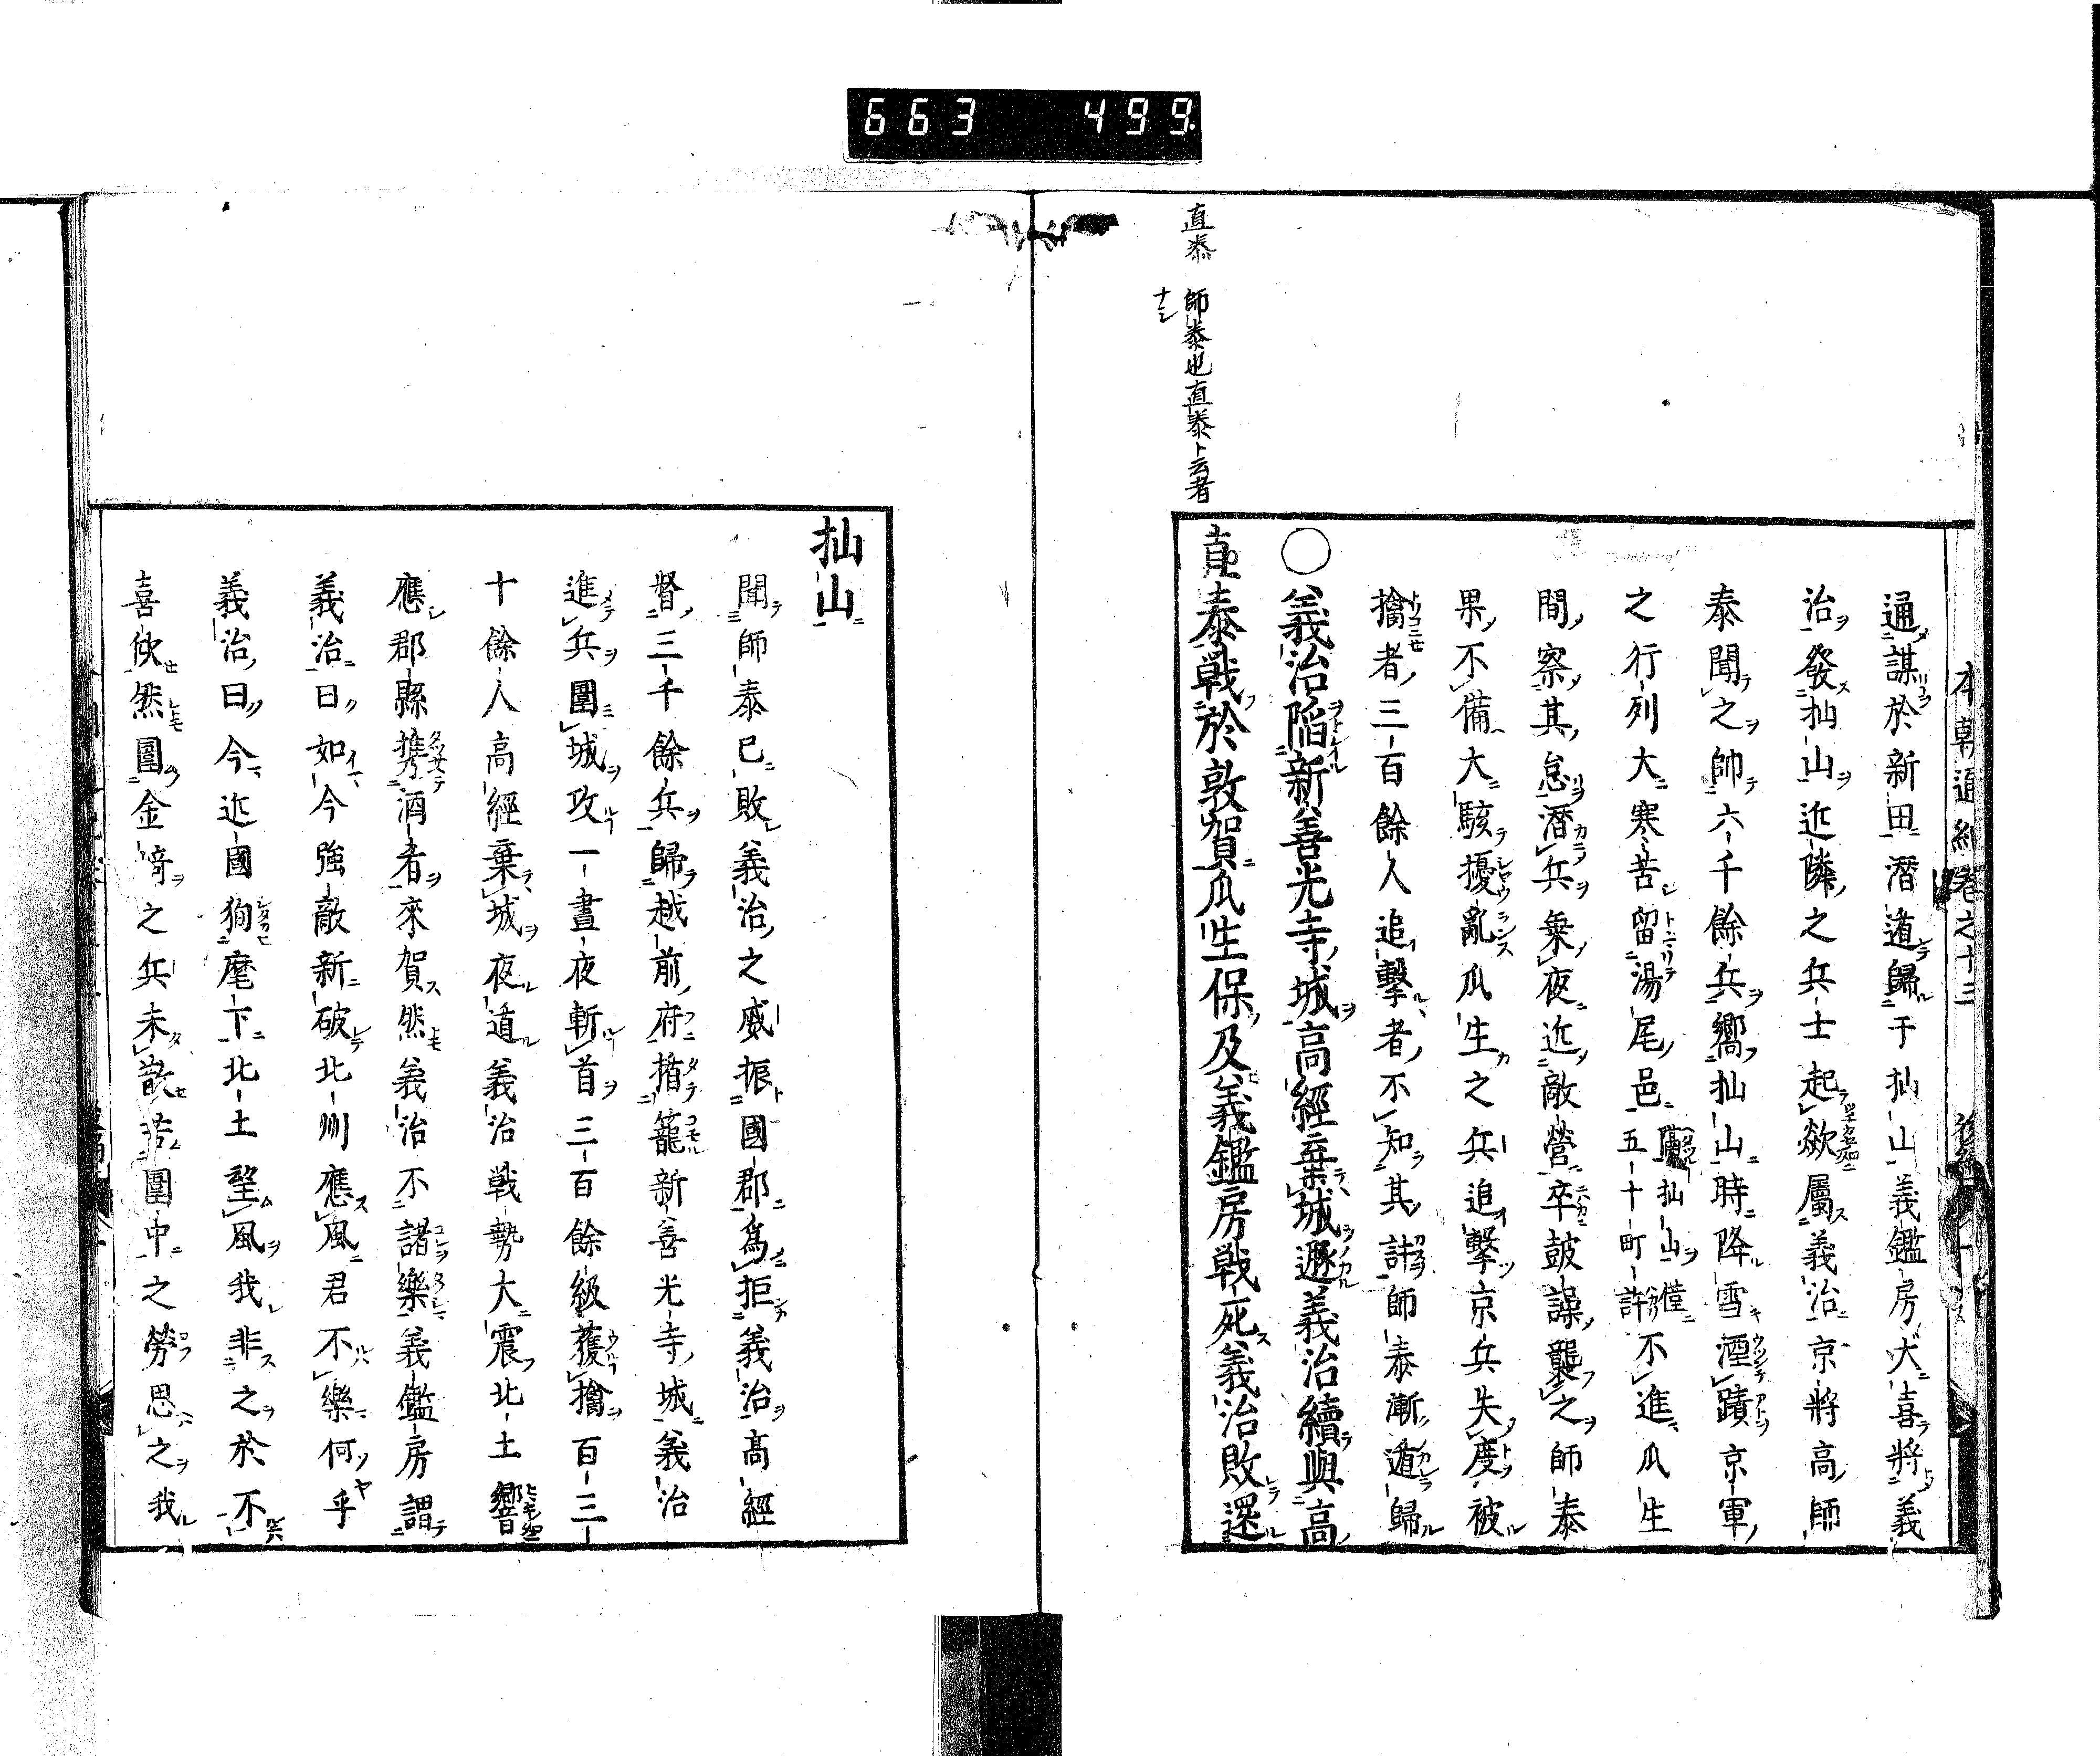 663 499.
直泰 師泰也直泰ト云者
ナシ
本朝通紀卷之十三
通謀於新田潛遁歸于杣山義鑑房大喜將義
治發杣山近隣之兵士起欻屬義治京將高師
泰聞之帥六千餘兵嚮杣山時降雪湮蹟京軍
之行列大寒苦留湯尾邑 杣山僅五十町許 不進瓜生
間察其怠潛兵乘夜近敵營卒鼓譟襲之師泰
果不備大駭擾亂瓜生之兵追擊京兵失度被
擒者三百餘人追擊者不知其計師泰漸遁歸
〇義治陷新善光寺城高經棄城遯義治續與高
直泰戰於敦賀瓜生保及義鑑房戰死義治敗還
杣山
聞師泰已敗義治之威振國郡爲拒義治高經
督三千餘兵歸越前府揩籠新善光寺城義治
進兵圍城攻一晝夜斬首三百餘級獲擒百三
十餘人高經棄城夜遁義治戰勢大震北土響
應郡縣携酒肴來賀然義治不諸樂義鑑房謂
義治曰如今強敵新破北州應風君不樂何乎
義治曰今近國狥麾下北土望風我非之於不
喜俠然圍金﨑之兵未散苦圍中之勞思之我